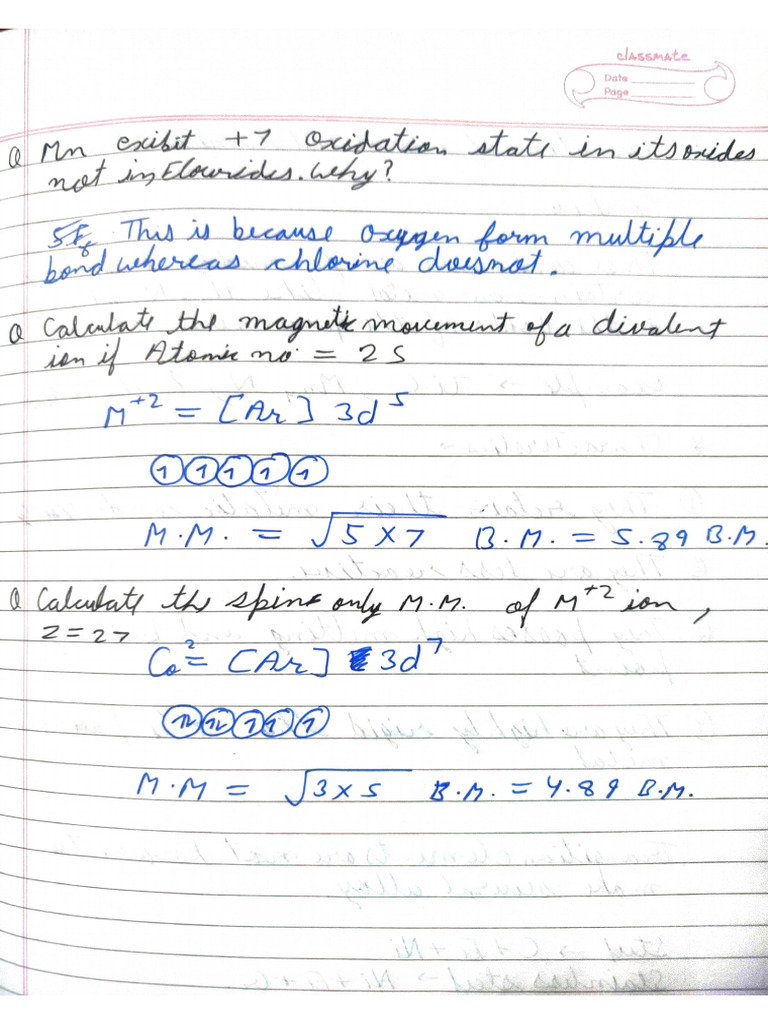 classmate
Date
Page
Q Mn exibit +7 Oxidation state in its oxides
not in Flourides. Why?
This is because Oxygen form multiple
bond whereas chlorine doesnot.
Q Calculate the magnetic movement of a divalent
ion if Atomic no. = 25
M+2 = [Ar] 3d5
1 1 1 1 1
M.M. = √5×7 B.M. = 5.89 B.M.
Q Calculate the spin only M.M. of M+2 ion,
Z=27
Co2= [Ar] 3d7
1L 1L 1 1 1
M.M = √3×5 B.M. = 4.89 B.M.